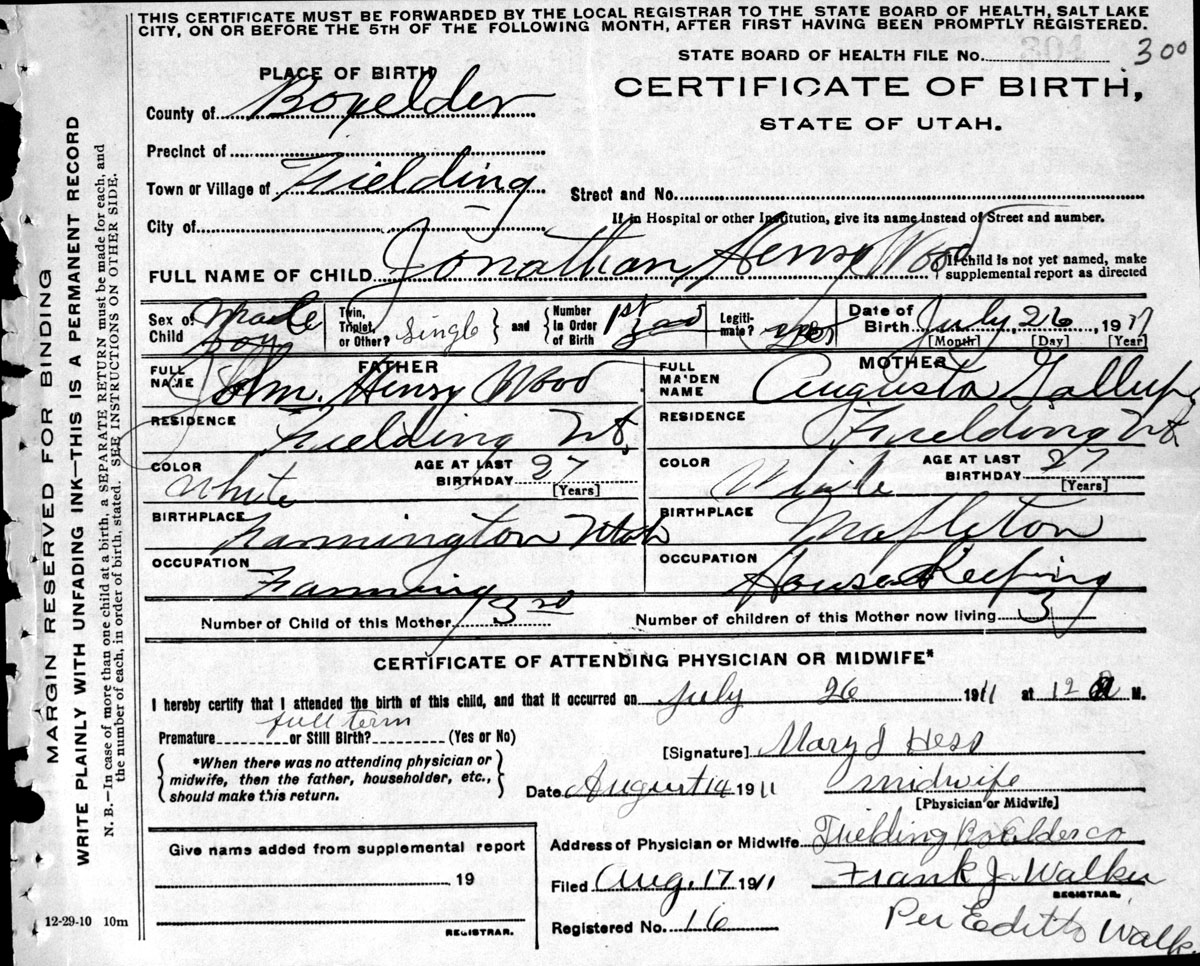 THIS CERTIFICATE MUST BE FORWARDED BY THE LOCAL REGISTRAR TO THE STATE BOARD OF HEALTH, SALT LAKE
CITY, ON OR BEFORE THE 5TH OF THE FOLLOWING MONTH, AFTER FIRST HAVING BEEN PROMPTLY REGISTERED.
STATE BOARD OF HEALTH FILE No. 304 300
PLACE OF BIRTH
CERTIFICATE OF BIRTH,
STATE OF UTAH.
County of Boxelder
Precinct of
Town or Village of Fielding
Street and No.
If in Hospital or other Institution, give its name instead of Street and number.
City of
FULL NAME OF CHILD Jonathan Henry Wood
If child is not yet named, make
supplemental report as directed
Sex of Child Male Boy
Twin, Triplet, or Other? Single
and
Number In Order of Birth 1st
Legiti-mate? yes
Date of Birth July, 26, 1911
[Month] [Day] [Year]
FATHER
MOTHER
FULL NAME John. Henry Wood
FULL MAIDEN NAME Augusta Gallup
RESIDENCE Fielding Ut.
RESIDENCE Fielding Ut
COLOR White AGE AT LAST BIRTHDAY 27 [Years]
COLOR White AGE AT LAST BIRTHDAY 27 [Years]
BIRTHPLACE Farmington Utah
BIRTHPLACE Mapleton
OCCUPATION Farming
OCCUPATION House Keeping
Number of Child of this Mother 3rd
Number of children of this Mother now living 3
CERTIFICATE OF ATTENDING PHYSICIAN OR MIDWIFE*
I hereby certify that I attended the birth of this child, and that it occurred on July 26 1911 at 12 a M.
full term
Premature or Still Birth? (Yes or No)
[Signature] Mary J Hess
*When there was no attending physician or
midwife, then the father, householder, etc.,
should make this return.
Date August 14 1911 midwife
[Physician or Midwife]
Give name added from supplemental report
19
REGISTRAR.
Address of Physician or Midwife Fielding Boxelder co
Filed Aug. 17 1911 Frank J. Walker
REGISTRAR.
Registered No. 16
Per Edith Walk
12-29-10 10m
MARGIN RESERVED FOR BINDING
WRITE PLAINLY WITH UNFADING INK—THIS IS A PERMANENT RECORD
N. B.—In case of more than one child at a birth, a SEPARATE RETURN must be made for each, and
the number of each, in order of birth, stated. SEE INSTRUCTIONS ON OTHER SIDE.